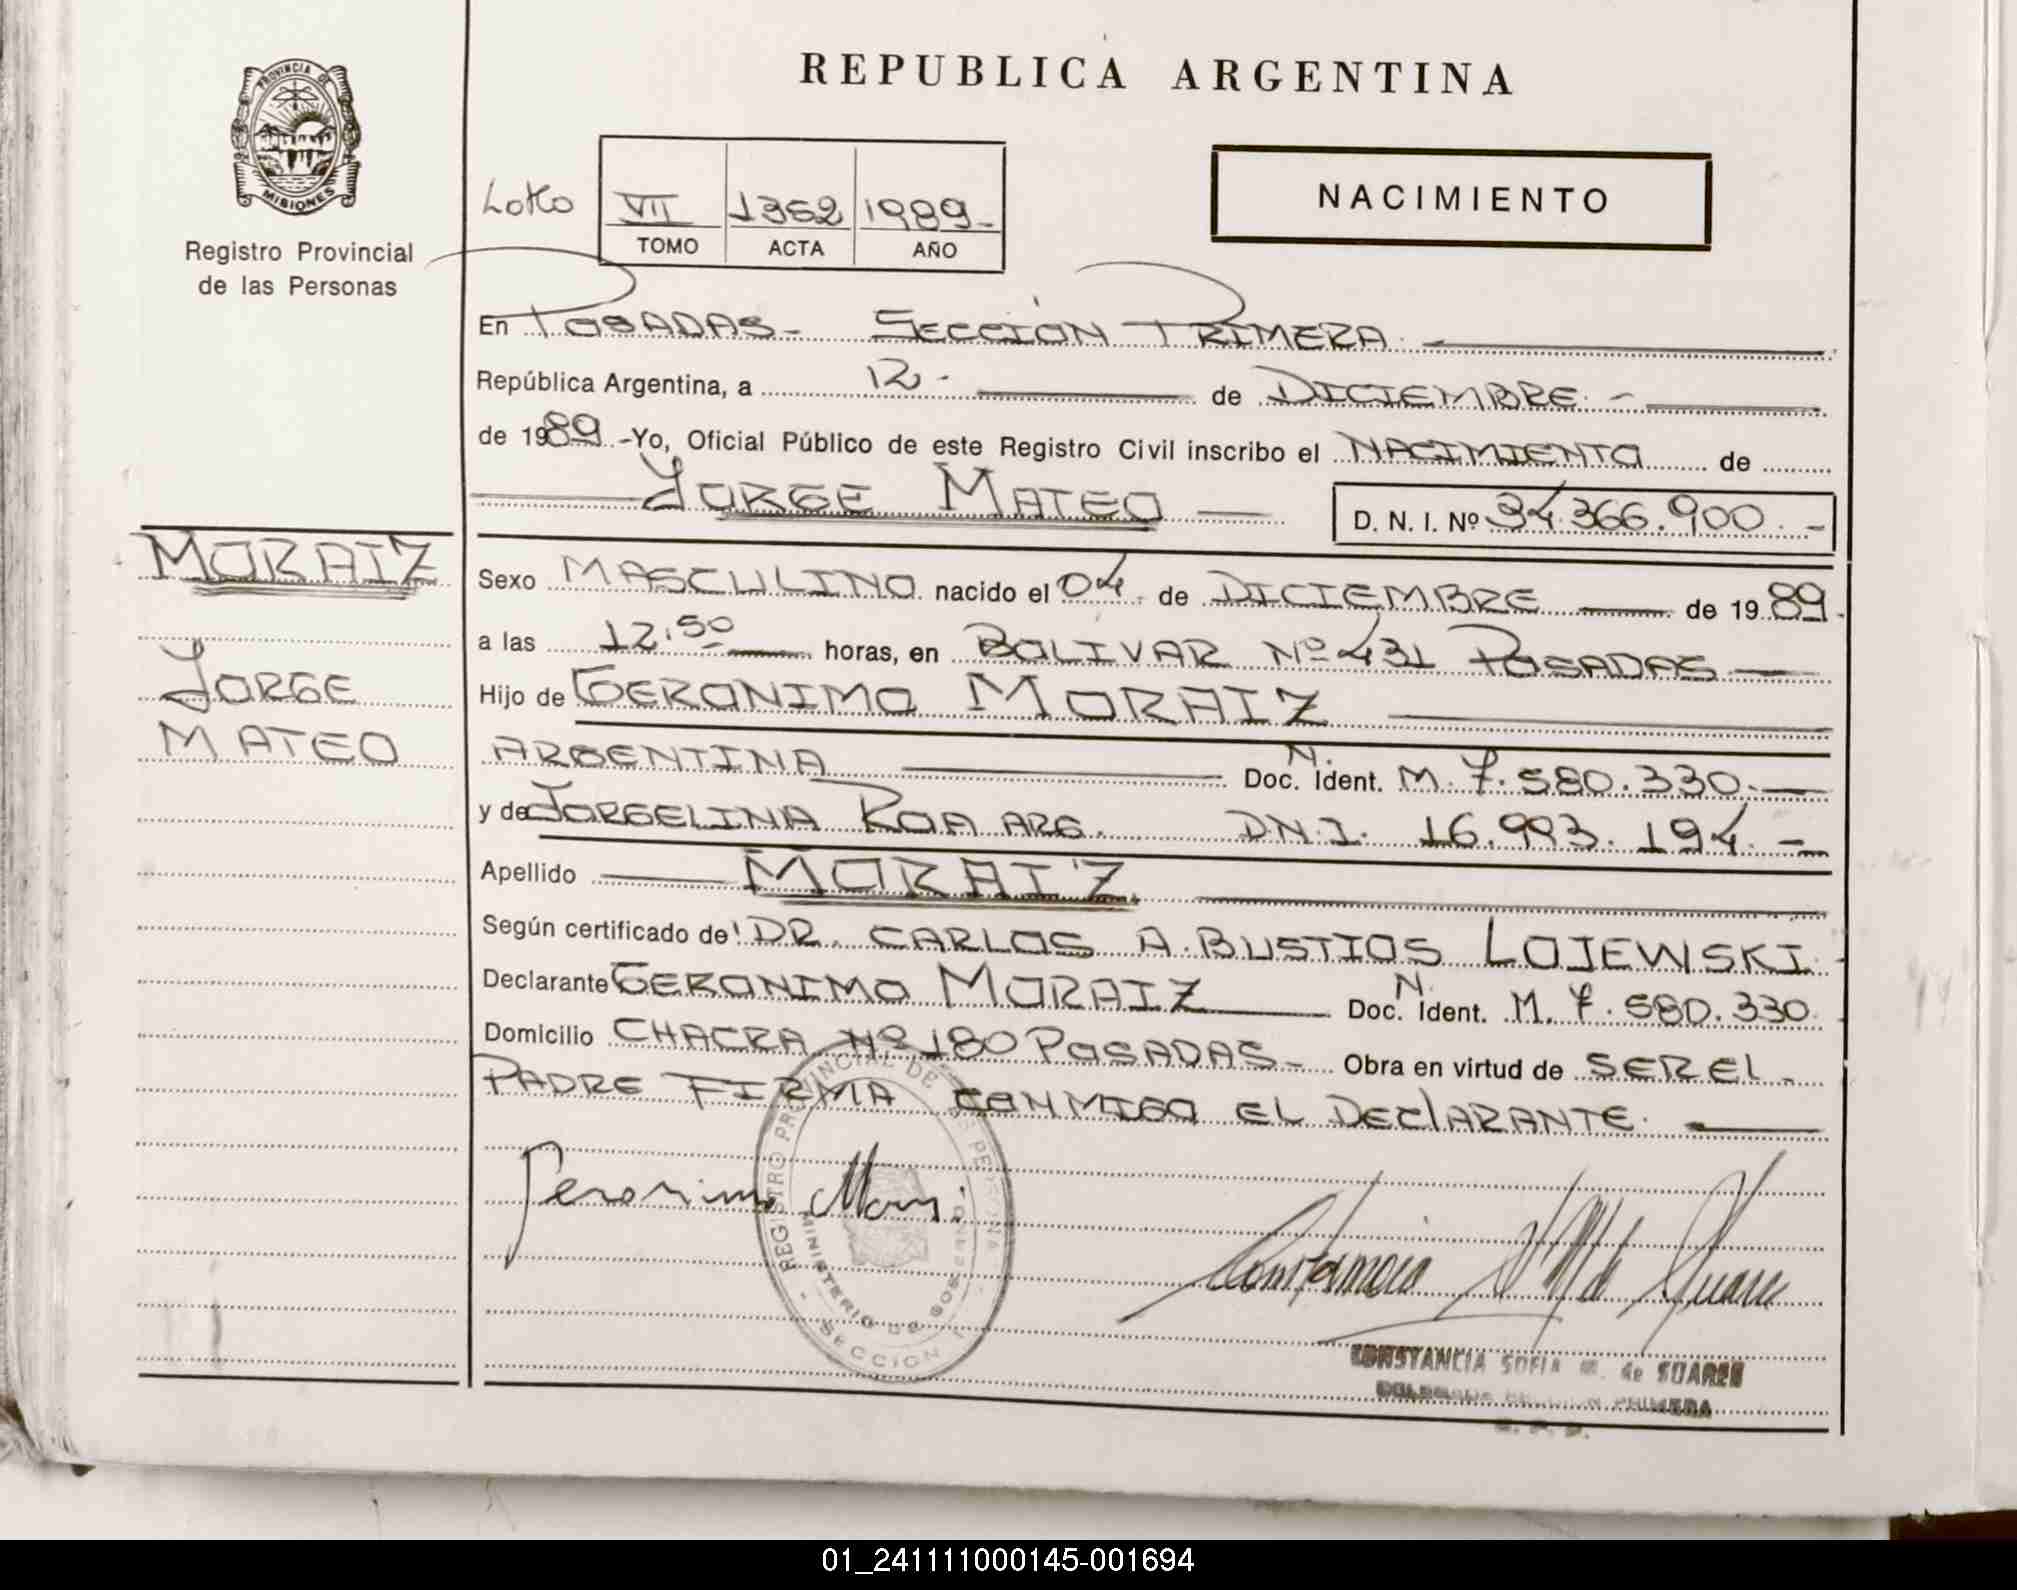 REPUBLICA ARGENTINA
PROVINCIA DE
MISIONES
Registro Provincial
de las Personas
NACIMIENTO
VII 1362 1989-
TOMO ACTA AÑO
En POSADAS- SECCIÓN PRIMERA.
República Argentina, a 12- de DICIEMBRE.-
de 1989.-Yo, Oficial Público de este Registro Civil inscribo el NACIMIENTO de
JORGE MATEO D. N. I. Nº 34.366.900.-
MORAIZ
JORGE
MATEO
Sexo MASCULINO nacido el 04 de DICIEMBRE de 1989.
a las 12.50 horas, en BOLIVAR Nº 431 POSADAS
Hijo de GERONIMO MORAIZ
ARGENTINA Doc. N. Ident. M. 7.580.330.
y de JORGELINA ROA ARG. D.N.I. 16.993.194.-
Apellido MORAIZ
Según certificado de DR. CARLOS A. BUSTIOS LOJEWSKI.
Declarante GERONIMO MORAIZ Doc. N. Ident. M. 7.580.330
Domicilio CHACRA Nº 180 POSADAS- Obra en virtud de SER EL
PADRE FIRMA CONMIGO EL DEClARANTE.
REGISTRO PROVINCIAL DE LAS PERSONAS
MINISTERIO DE GOBIERNO
SECCION 1
CONSTANCIA SOFIA M. de SUAREZ
DELEGADA SECCION PRIMERA
01_241111000145-001694